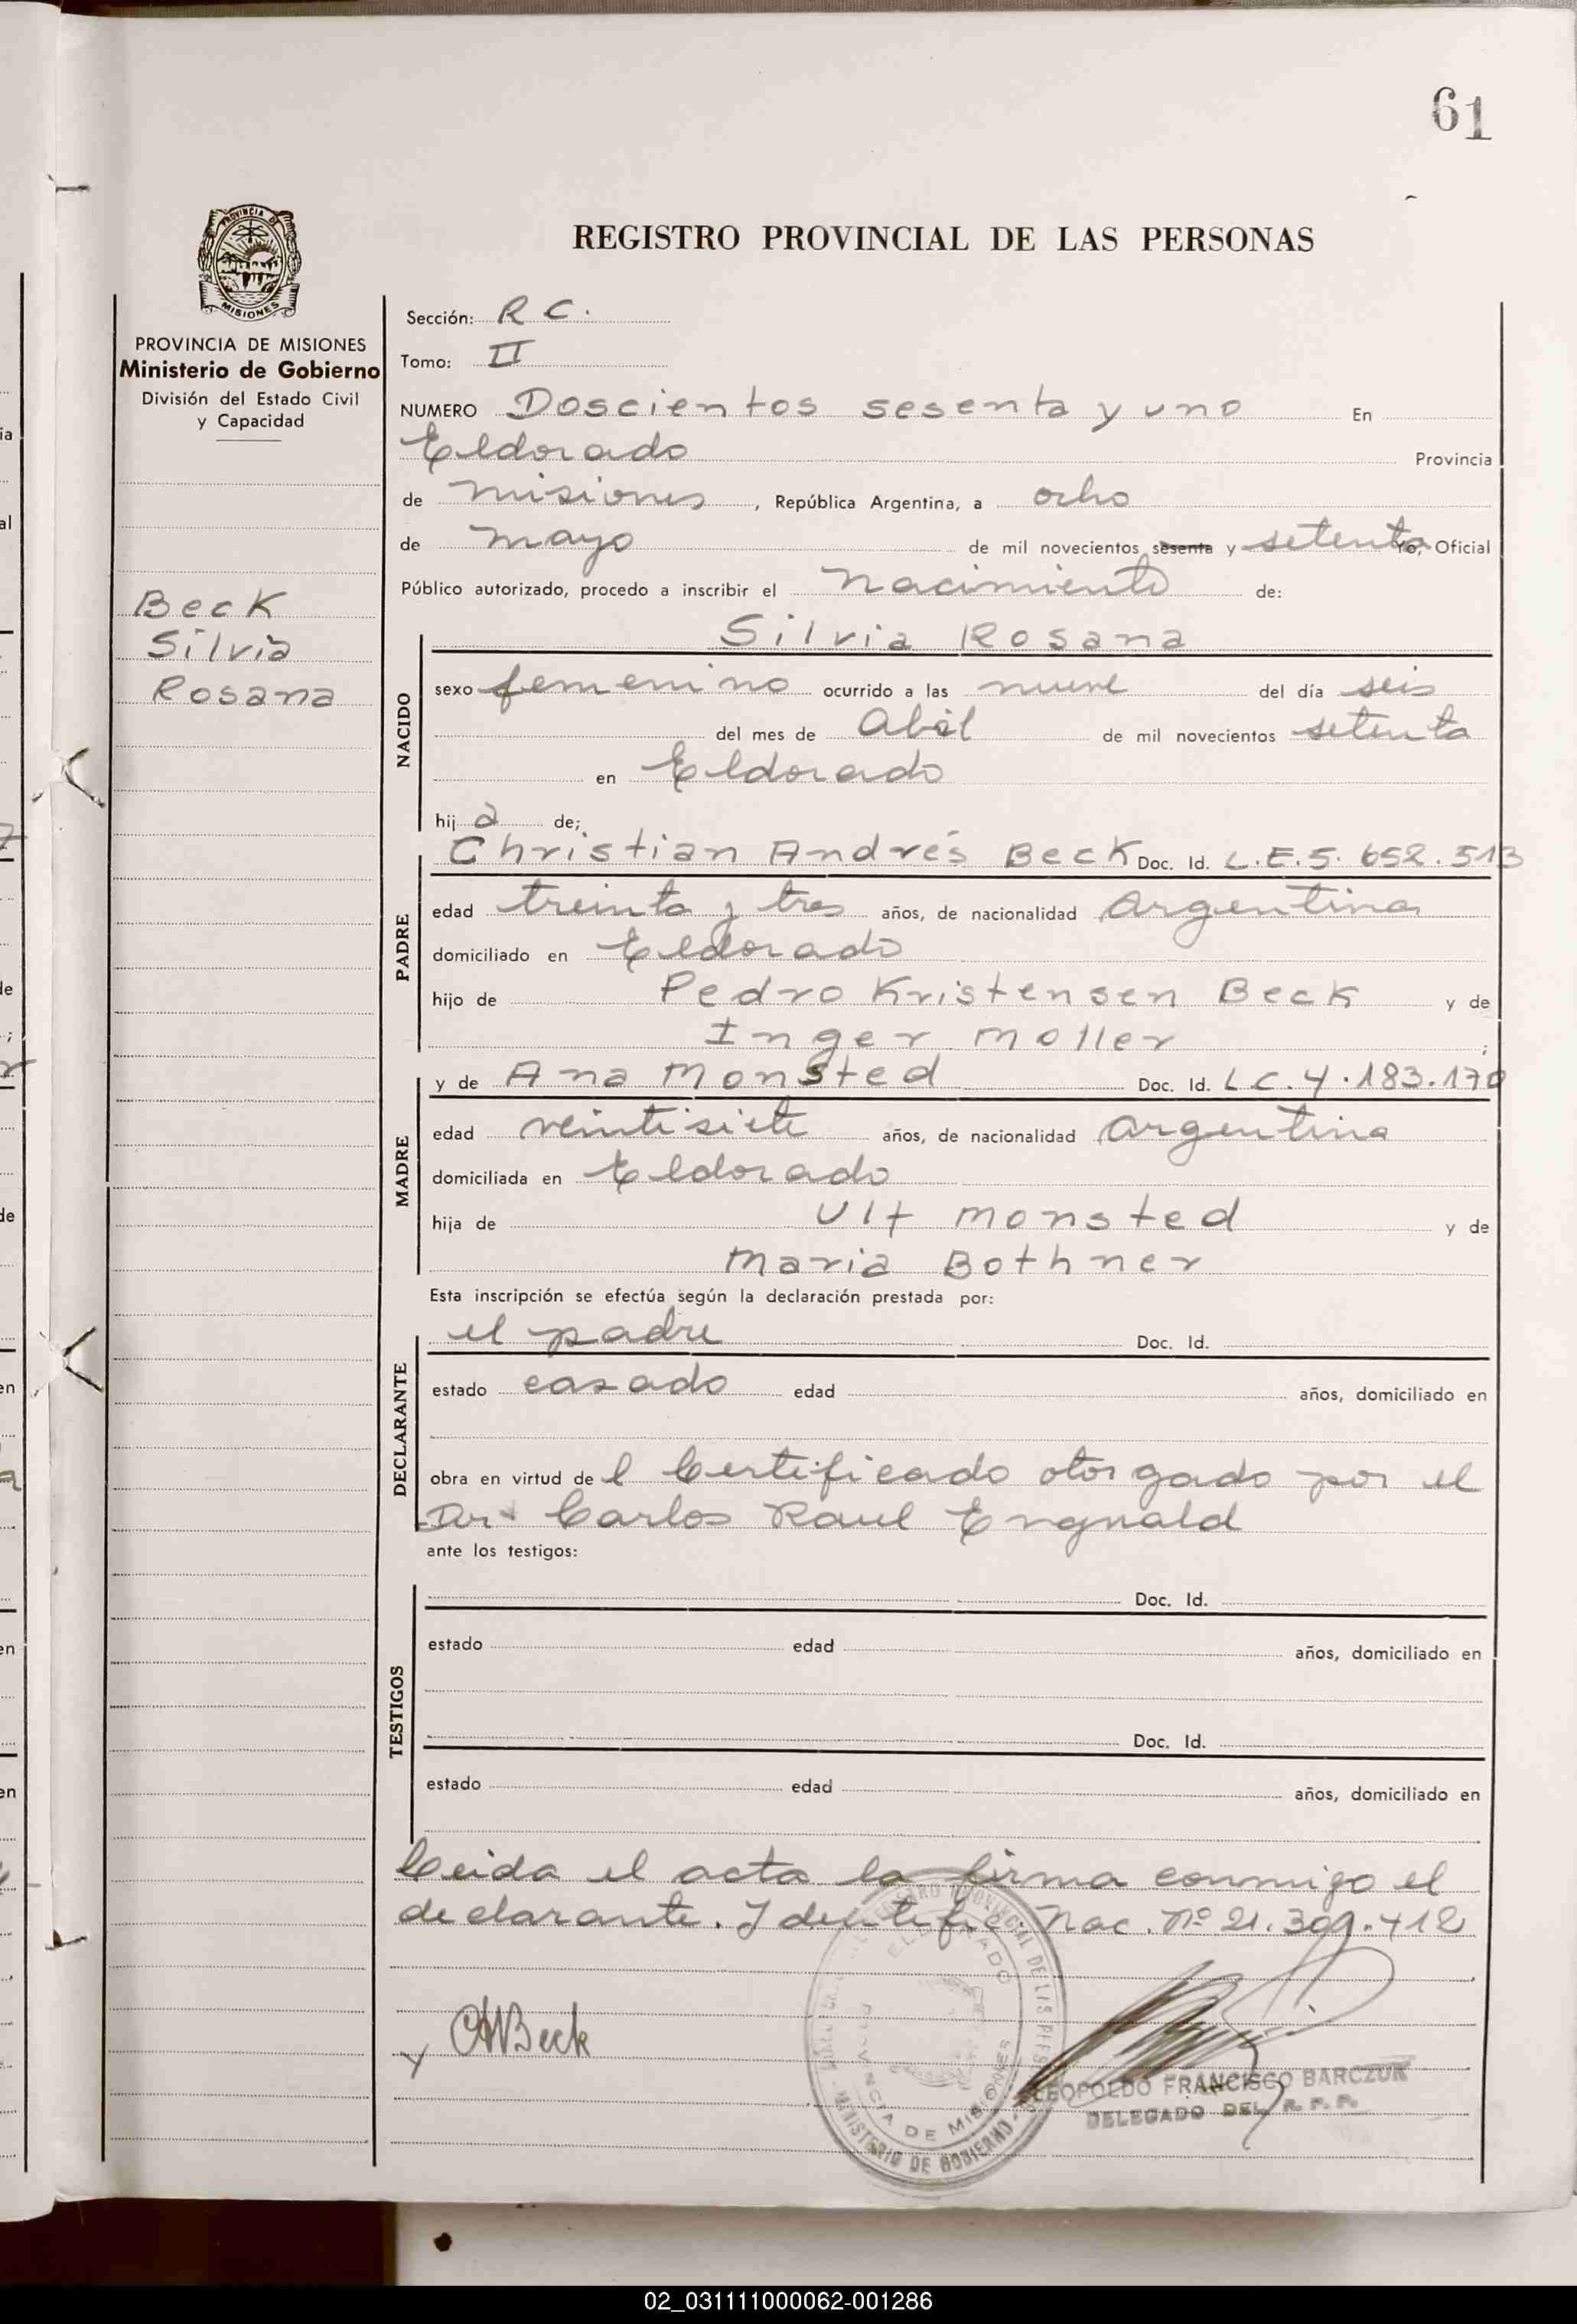 61
REGISTRO PROVINCIAL DE LAS PERSONAS
PROVINCIA DE
MISIONES
PROVINCIA DE MISIONES
Ministerio de Gobierno
División del Estado Civil
y Capacidad
Beck
Silvia
Rosana
Sección: R C.
Tomo: II
NUMERO Doscientos sesenta y uno En
Eldorado Provincia
de misiones, República Argentina, a ocho
de mayo de mil novecientos sesenta y setenta Yo, Oficial
Público autorizado, procedo a inscribir el nacimiento de:
NACIDO
Silvia Rosana
sexo femenino ocurrido a las nueve del día seis
del mes de Abril de mil novecientos setenta
en Eldorado
hija de;
PADRE
Christian Andrés Beck Doc. Id. L.E.5.652.513
edad treinta y tres años, de nacionalidad Argentina
domiciliado en Eldorado
hijo de Pedro Kristensen Beck y de
Inger Moller ;
MADRE
y de Ana Monsted Doc. Id. LC.4.183.170
edad veintisiete años, de nacionalidad Argentina
domiciliada en Eldorado
hija de Ulf Monsted y de
Maria Bothner
Esta inscripción se efectúa según la declaración prestada por:
DECLARANTE
el padre Doc. Id.
estado casado edad años, domiciliado en
obra en virtud del Certificado otorgado por el
Dr. Carlos Raul
ante los testigos:
TESTIGOS
Doc. Id.
estado edad años, domiciliado en
Doc. Id.
estado edad años, domiciliado en
Leida el acta la firma conmigo el
declarante. Identific. Nac. Nº 21.309.412
CABeck
ELDORADO
PROVINCIA DE MISIONES
MINISTERIO DE GOBIERNO
LEOPOLDO FRANCISCO BARCZUK
DELEGADO DEL R. P. P.
02_031111000062-001286